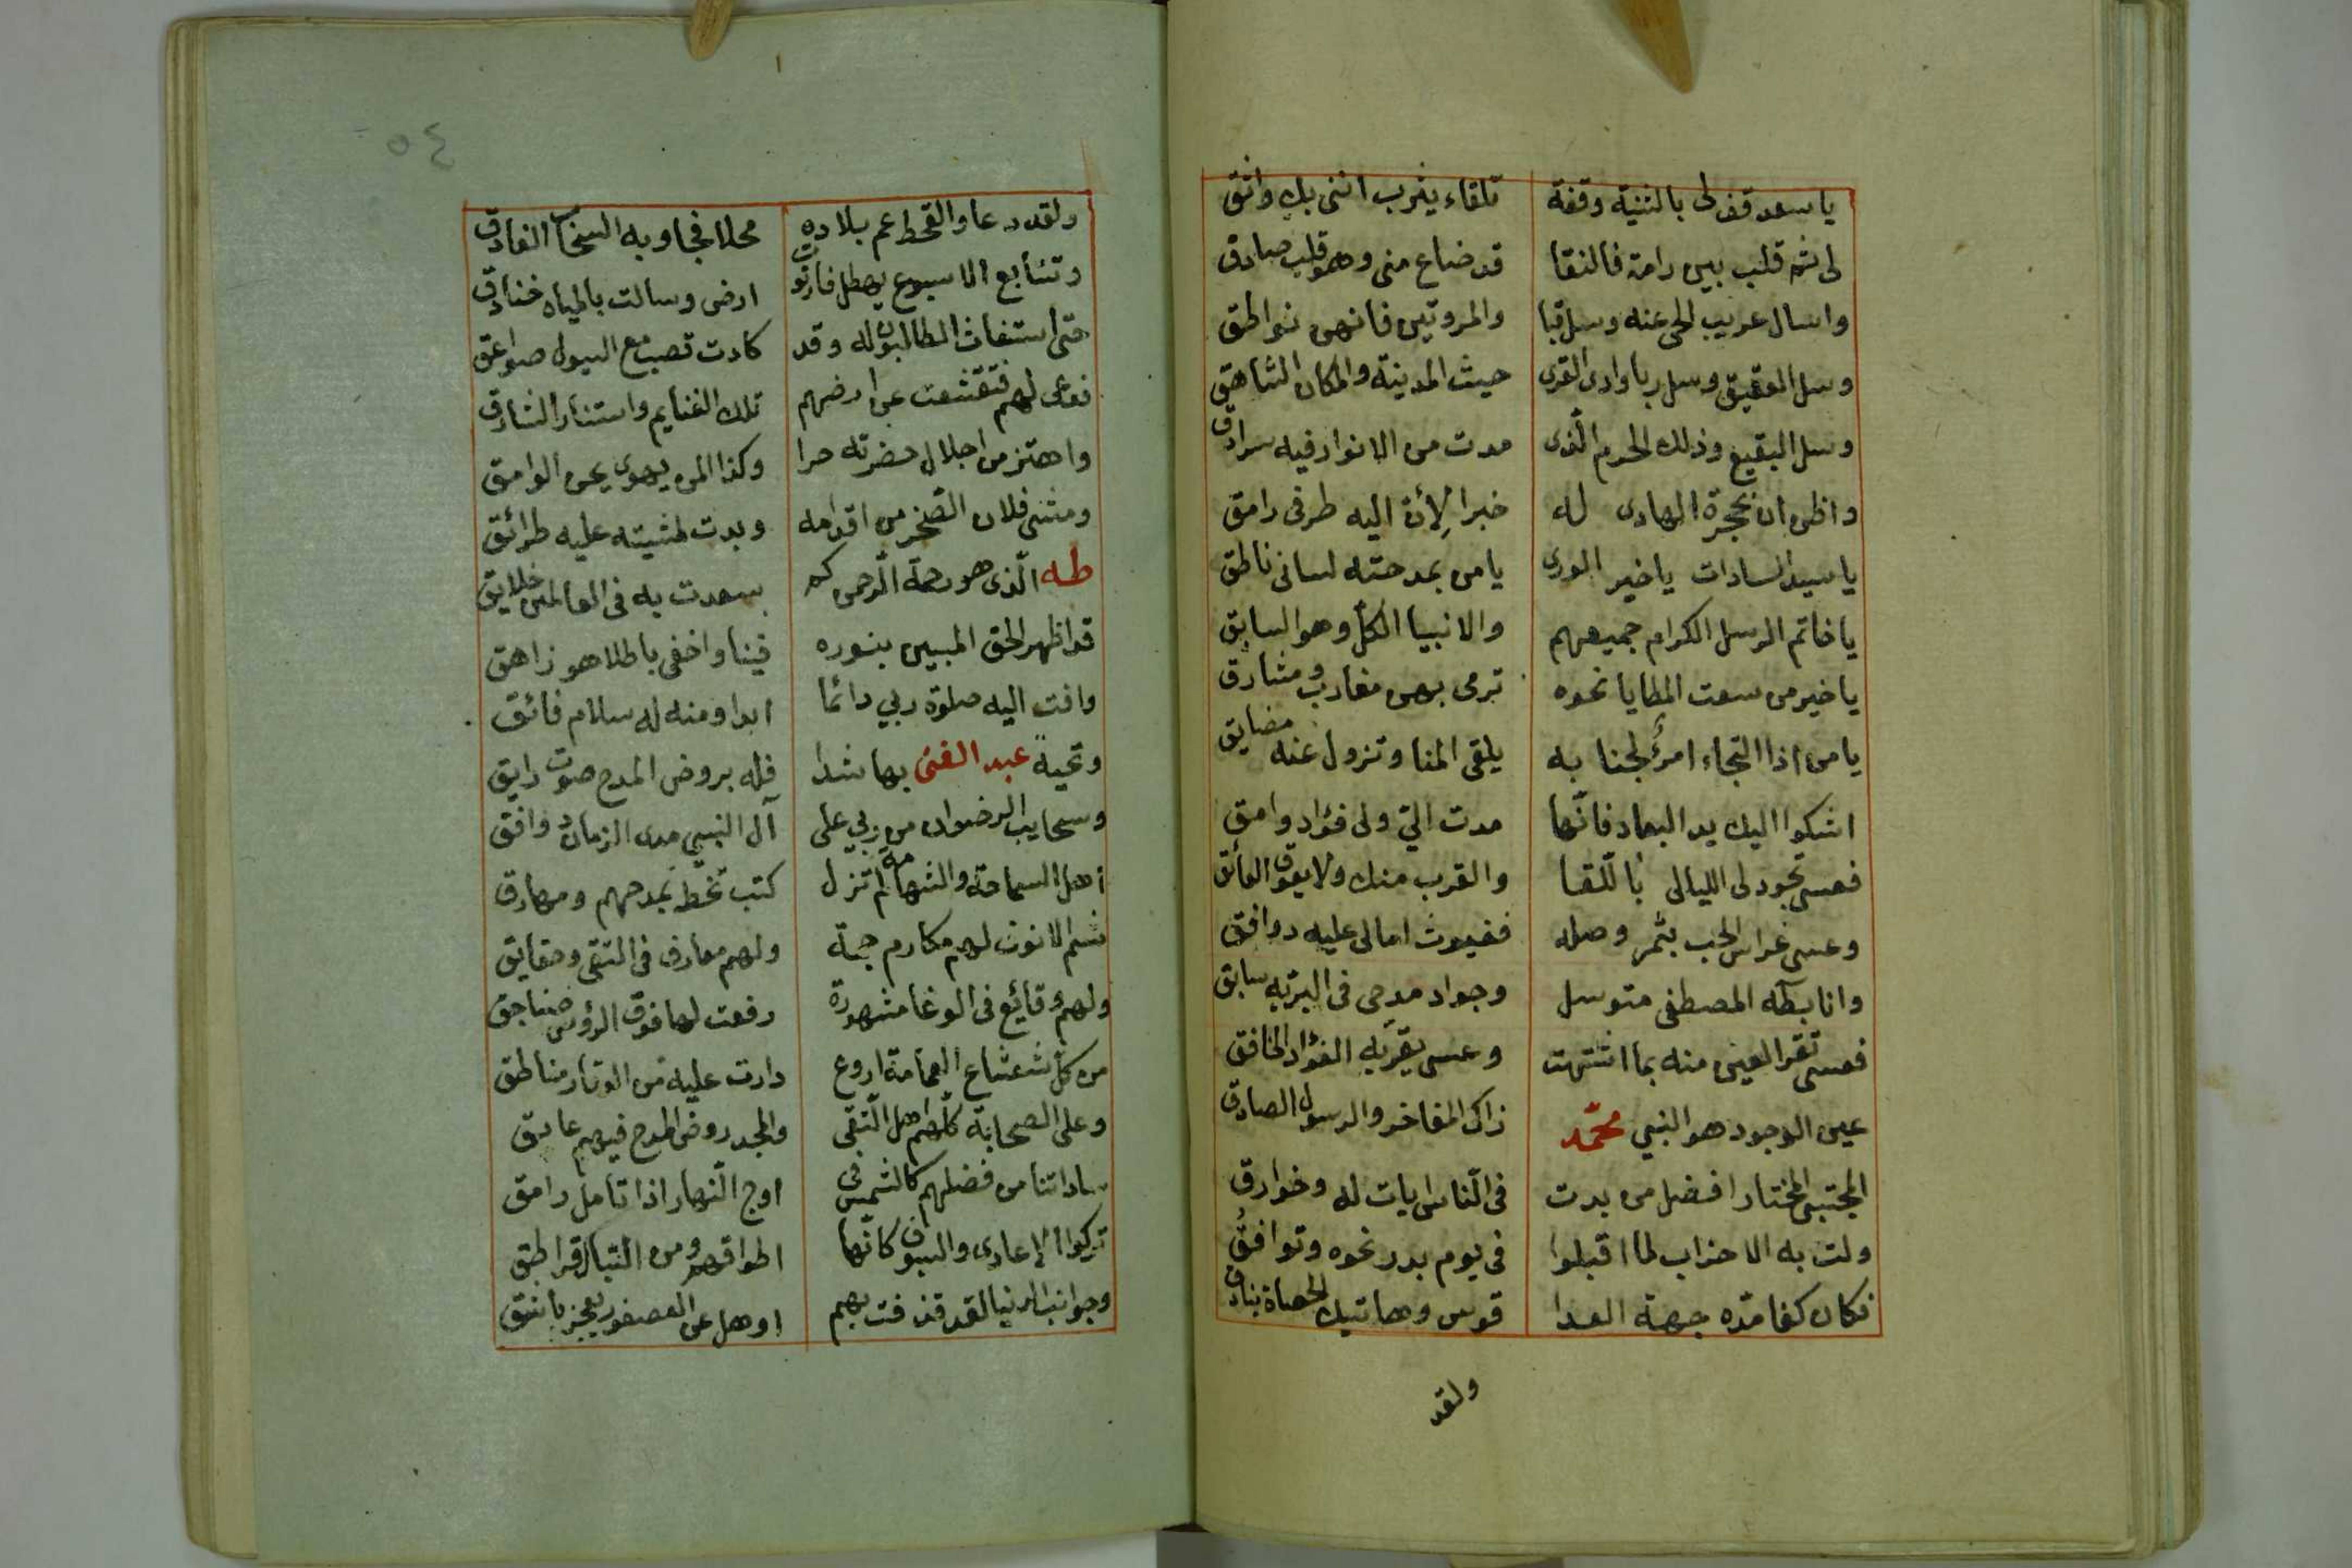 يا سعد قف لى بالثنية وقفة تلقاء يثرب اننى بك واثق
لى ثم قلب بين رامة فالنقا قد ضاع منى وهو قلب صادق
واسال عريب الحى عنه وسل قبا والمروتين فانهن نواطق
وسل العقيق وسل ربا وادى القرى حيث المدينة والمكان الشاهق
وسل البقيع وذلك الحرم الّذى مدت من الانوار فيه سرادق
واظن ان بحجرة الهادى له خبرا لأن اليه طرفى رامق
يا سيد السادات يا خير الورى يا من بمدحته لسانى ناطق
يا خاتم الرسل الكرام جميعهم والانبيا الكل وهو السابق
يا خير من سعت المطايا نحوه ترمى بهن مغارب ومشارق
يا من اذا التجاء امرؤ لجنا به يلقى المنا وتزول عنه مضايق
اشكوا اليك يد البعاد فانّها مدت اليّ ولى فؤاد وامق
فعسى تجود لى الليالى باللّقا والقرب منك ولا يعوق العائق
وعسى غراس الحب يثمر وصله فغيوث امالى عليه دوافق
وانا بطٓه المصطفى متوسل وجواد مدحى فى البريّه سابق
فعسى تقر العين منه بما اشتهت وعسى يقرّ به الفؤاد الخافق
عين الوجود هو النبي محمّد زاكى المفاخر والرسول الصادق
المجتبى المختار افضل من بدت فى النّاس ايات له وخوارق
ولت به الاحزاب لما اقبلوا فى يوم بدر نحوه وتوافقُ
فكان كفا مدّه جهة العدا قوس وهاتيك الحصاة بنادق
ولقد
٥٤
ولقد دعا والقحط عم بلاده محلا فجاوبه السحاب الغادق
وتتابع الاسبوع يهطل فارتوت ارض وسالت بالمياه خنادق
حتى استغاث الطالبون له وقد كادت تصب مع السيول صواعق
فدعى لهم فتقشعت عن ارضهم تلك الغنايم واستنار الشارق
واهتز من اجلال حضرته حرا وكذا لمن يهوى يحن الوامق
ومشى فلان الصّخر من اقدامه وبدت لمشيته عليه طرائق
طه الّذى هو رحمة الرّحمن كم سعدت به فى العالمين خلايق
قد اظهر الحق المبين بنوره فينا واخفى باطلا هو زاهق
وافت اليه صلوة ربي دائما ابدا ومنه له سلام فائق
وتحيةً عبد الغنى بها شدا فله بروض المدح صوت رايق
وسحايب الرضوان من ربي على آل النبي مدى الزمان دوافق
اهل السماحة والشهامة لم تزل كتب تخط بمدحهم ومهارق
شم الانوف لهم مكارم جمة ولهم معارف فى التقى وحقايق
ولهم وقائع فى الوغا مشهورة رفعت لها فوق الرؤس صناجق
من كلّ شعشاع العمامة اروع دارت عليه من الوقار مناطق
وعلى الصحابة كلّهم اهل التّقى والمجد روض المدح فيهم عابق
ساداتنا من فضلهم كالشمس فى اوج النّهار اذا تامل رامق
تركوا الاعادى والسيوف كانّها اطواقهم ومن النبال قراطق
وجوانب الدنيا لقد قذفت بهم او هل عن العصفور يعجز باشق